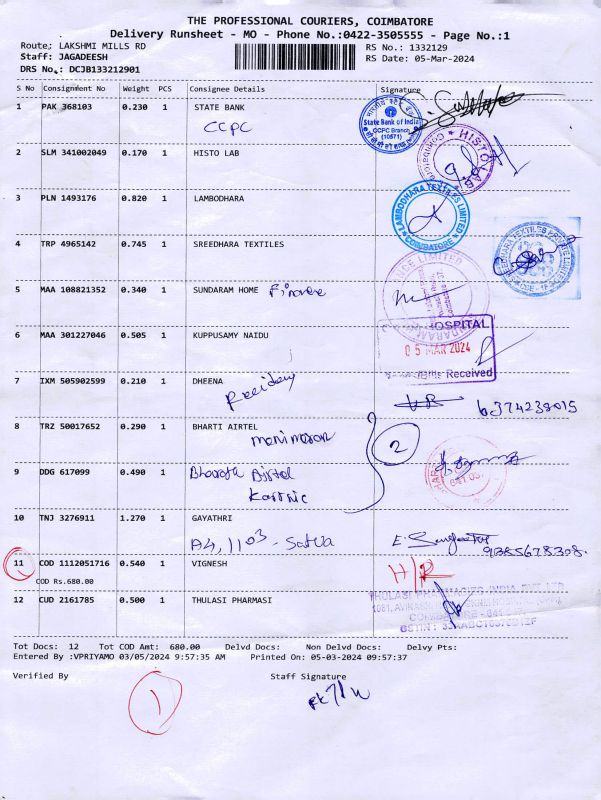 THE PROFESSIONAL COURIERS, COIMBATORE
Delivery Runsheet - MO - Phone No.:0422-3505555 - Page No.:1
Route; LAKSHMI MILLS RD
RS No.: 1332129
Staff: JAGADEESH
RS Date: 05-Mar-2024
DRS No.: DCJB133212901
S No Consignment No Weight PCS Consignee Details Signature
1 PAK 368103 0.230 1 STATE BANK
CCPC
State Bank of India
CCPC Branch
(10571)
2 SLM 341002049 0.170 1 HISTO LAB
HISTO LAB
3 PLN 1493176 0.820 1 LAMBODHARA
LAMBODHARA TEXTILES LIMITED
COIMBATORE
4 TRP 4965142 0.745 1 SREEDHARA TEXTILES
SREEDHARA TEXTILES PRIVATE LIMITED
5 MAA 108821352 0.340 1 SUNDARAM HOME Finance
LIMITED
6 MAA 301227046 0.505 1 KUPPUSAMY NAIDU
HOSPITAL
05 MAR 2024
Received
7 IXM 505902599 0.210 1 DHEENA
6374238015
8 TRZ 50017652 0.290 1 BHARTI AIRTEL
2
9 DDG 617099 0.490 1 Bharath Airtel
641 03
10 TNJ 3276911 1.270 1 GAYATHRI
A4, 1103 - Satva
9385678308.
11 COD 1112051716 0.540 1 VIGNESH
COD Rs.680.00
12 CUD 2161785 0.500 1 THULASI PHARMASI
THULASI PHARMACIES INDIA PVT. LTD
COIMBATORE - 641
GSTIN :
Tot Docs: 12 Tot COD Amt: 680.00 Delvd Docs: Non Delvd Docs: Delvy Pts:
Entered By :VPRIYAMO 03/05/2024 9:57:35 AM Printed On: 05-03-2024 09:57:37
Verified By Staff Signature
1